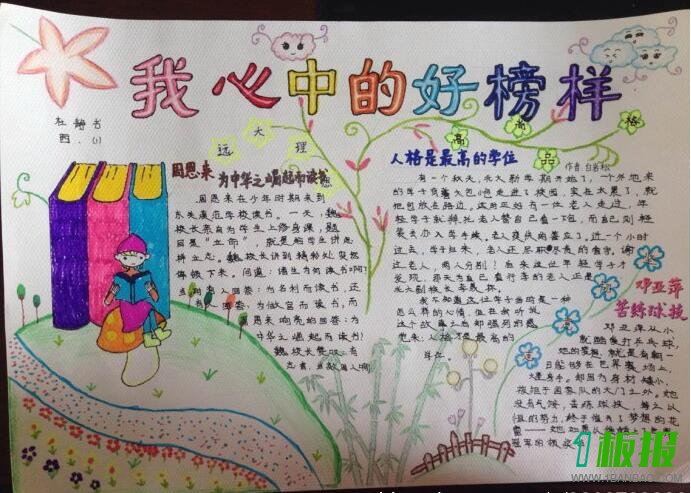 我心中的好榜样
杜静书
四.(1)
远大理
高尚品格
周恩来
为中华之崛起而读书
周恩来在少年时期来到
东关模范学校读书。一天，魏
校长亲自为学生上修身课，题
目是“立命”，就是给学生讲怎
样立志。魏校长讲到精彩处突然
停顿下来。问道：诸生为何读书啊？
为名利而读书，还
有人回答：为做官而读书，而
周恩来响亮的回答：为
中华之崛起而读书！
魏校长赞叹：有
志者，当效周生啊
人格是最高的学位
作者：白岩松
有一个秋天，北大新学期开始了，一个外地来
的学子背着大包小包走进了校园，实在太累了，就
把包放在路边。这时正好有一位老人走过，年
轻学子就拜托老人替自己看一下包，而自己则轻
装去办入学手续。老人爽快地答应了。近一个小时
过去，学子归来，老人还尽职尽责的看守。谢
过老人，两人分别？后来这位年轻学子才
发现，那天为自己看行李的老人正是
北大副校长季羡林。
我不知道这位学子当时是一种
怎么样的心情，但在我听说
这个故事之后却强烈的感
觉来，人格才是最高的
学位。
邓亚萍
苦练球技
邓亚萍从小
就酷爱打乒乓球，
她的梦想，就是有朝一
日能够在世界赛场上，
大显身手。却因为身材矮小，
被拒于国家队的大门之外。她
没有气馁，苦练球技，持之以
恒的努力，终于催开了梦想的花
蕾——她如愿以
冠军的领奖
1板报
WWW.1BANBAO.COM